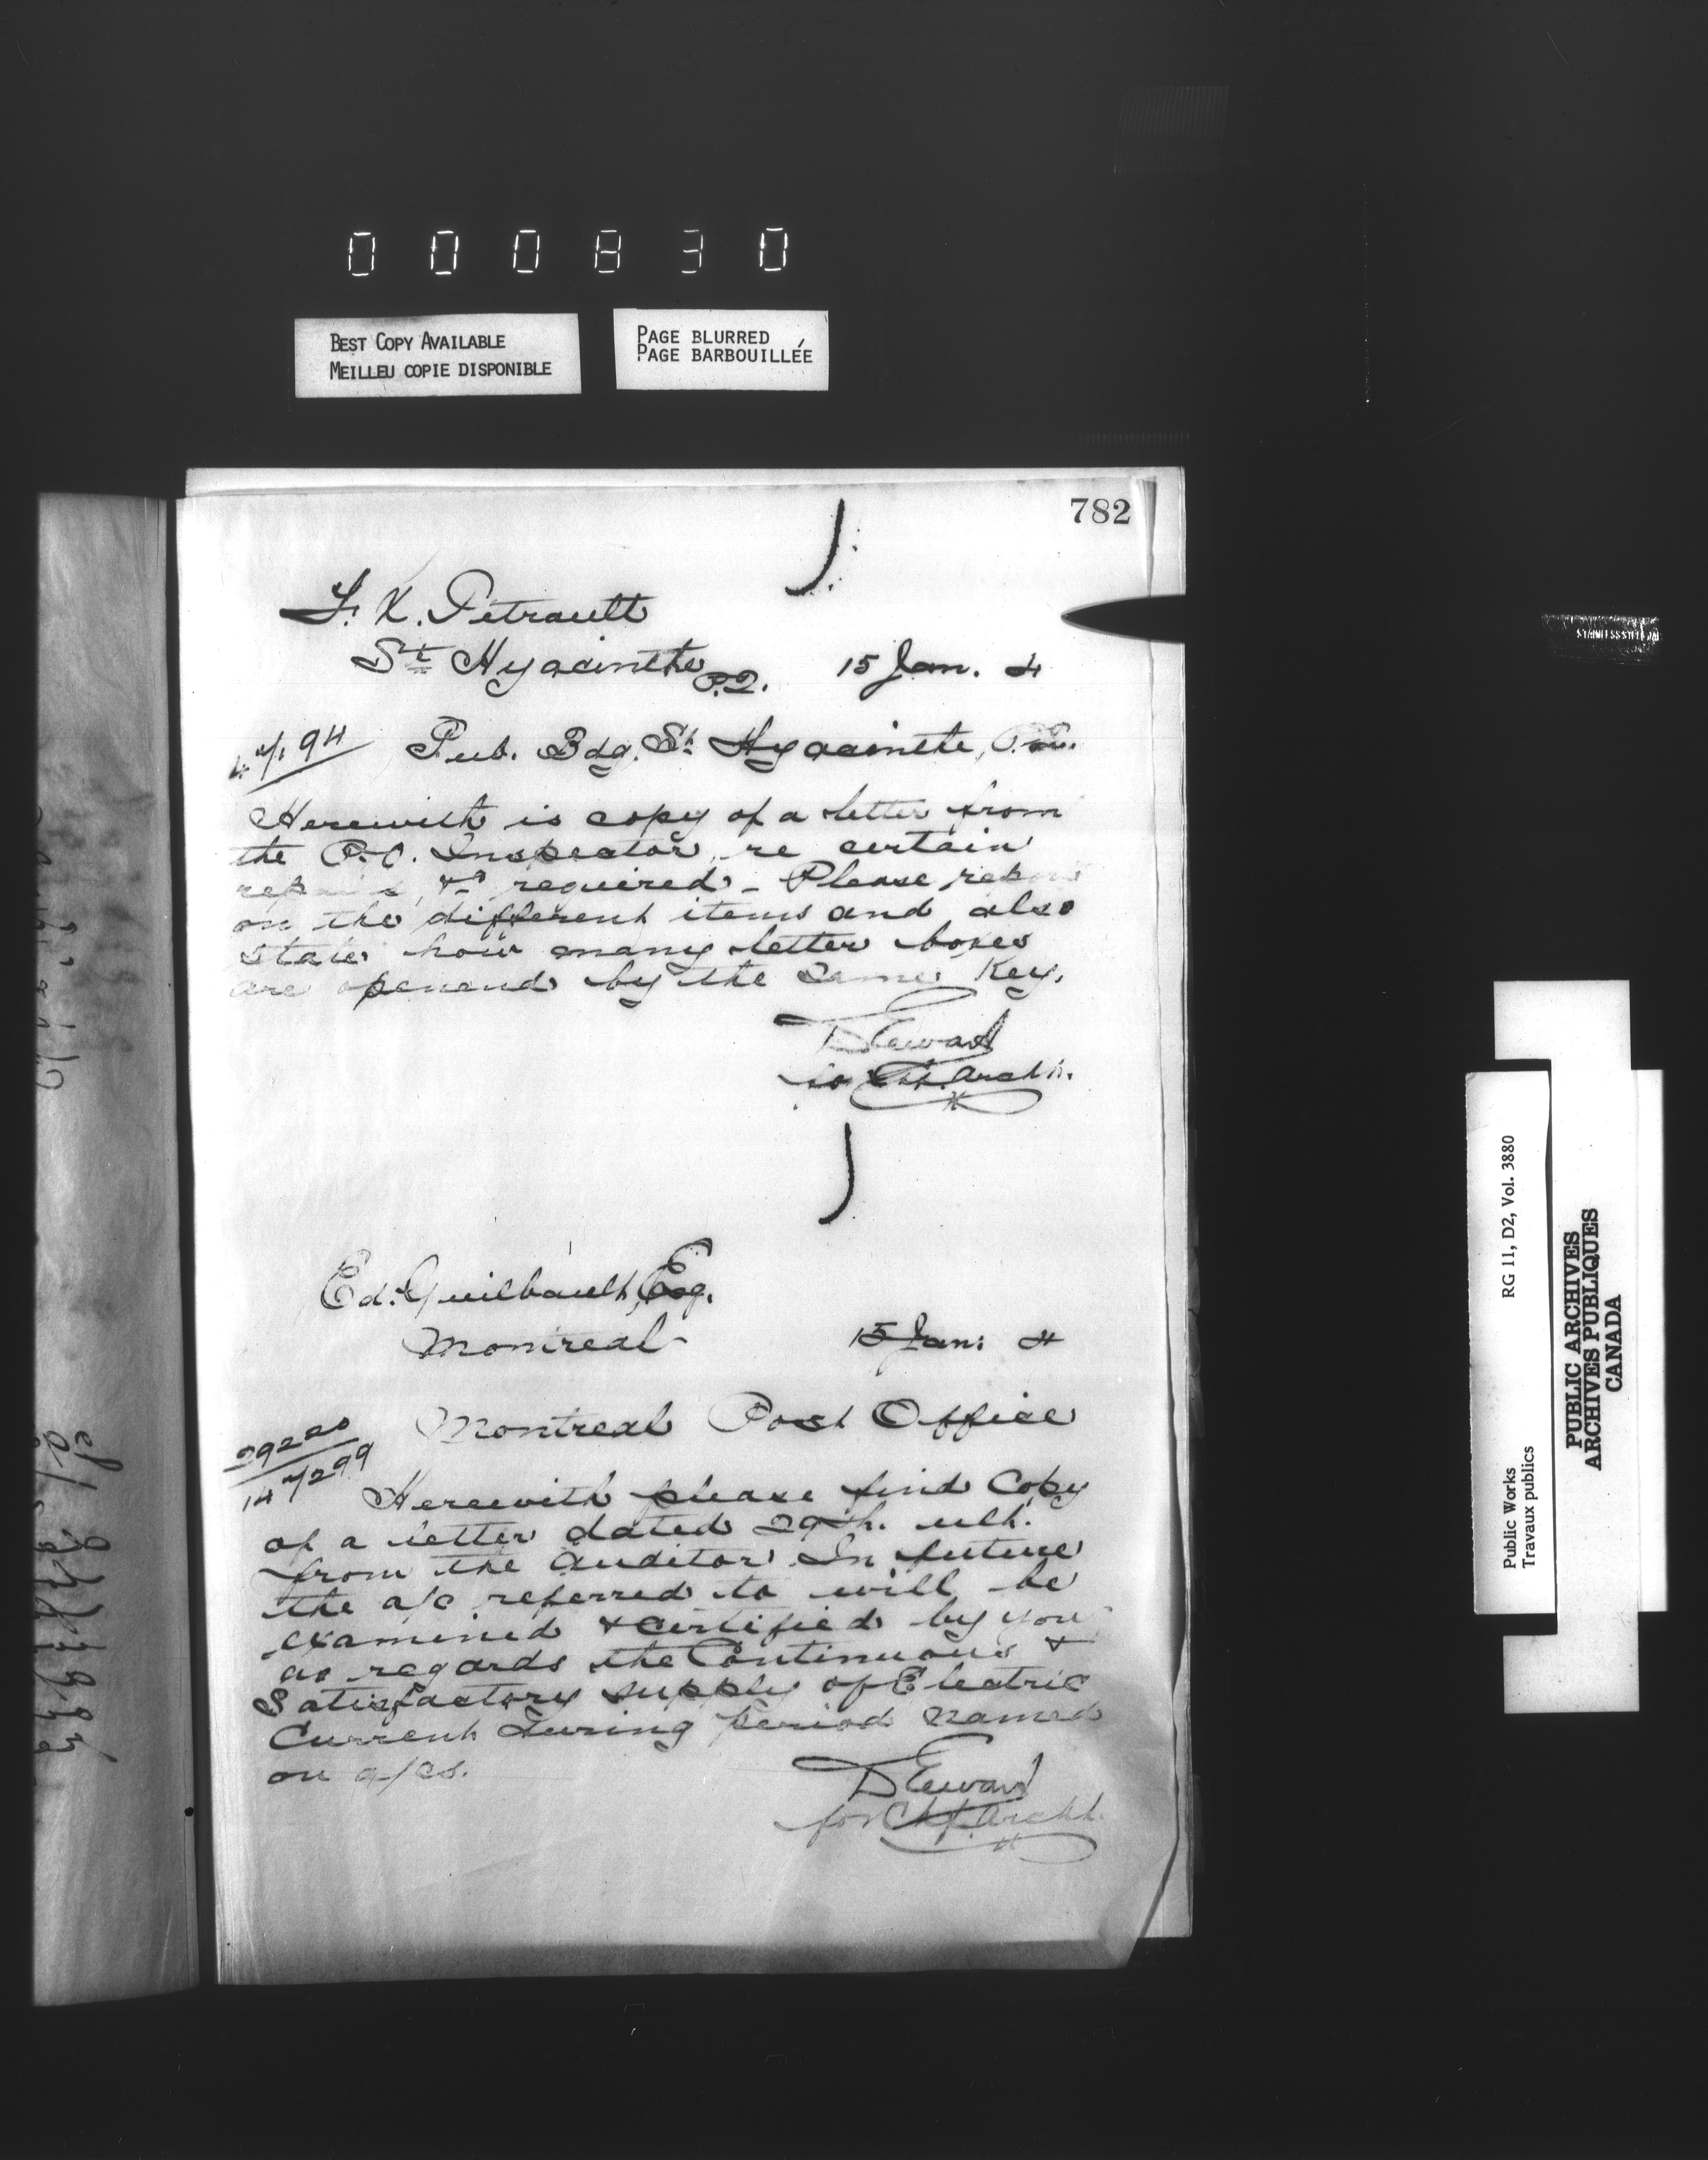 000830
BEST COPY AVAILABLE
MEILLEU COPIE DISPONIBLE
PAGE BLURRED
PAGE BARBOUILLÉE
782
St Hyacinthe P.Q. 15 Jan. 4
Pub. Bdg. St Hyacinthe, P.Q.
Herewith is copy of a letter from
the P.O. Inspector, re certain
repairs, &c required - Please report
on the different items and also
state how many letter boxes
are openend by the same Key.
D Ewart
for Chf. Archt.
Ed. Guilbault, Esq.
Montreal 15 Jan. 4
Montreal Post Office
29220
14 4/299
Herewith please find Copy
of a letter dated 29th. ult.
from the Auditor. In future
the a/c referred to will be
examined & certified by you
as regards the Continuous &
Satisfactory supply of Electric
Current during period named
on a/cs.
D Ewart
for Chf. Archt.
Public Works
Travaux publics
RG 11, D2, Vol. 3880
PUBLIC ARCHIVES
ARCHIVES PUBLIQUES
CANADA